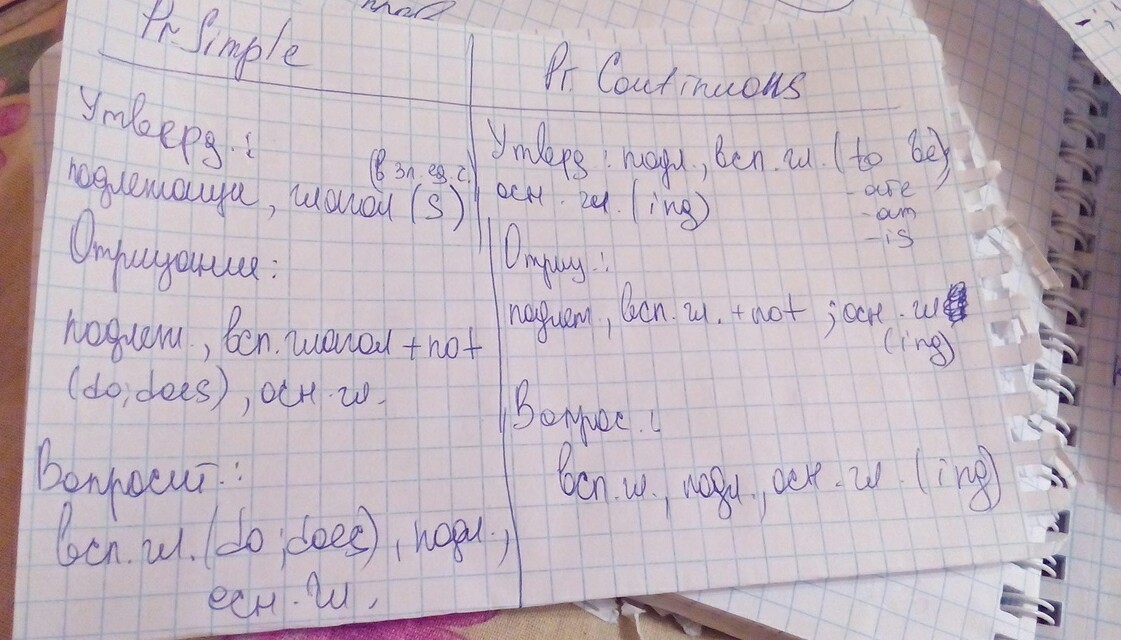 Pr Simple
Утверд.:
(в 3л. ед. ч.)
подлежащи, глагол (S)
Отрицание:
подлеж., всп. глагол + not
(do; does), осн. гл.
Вопросит.:
всп. гл. (do; does), подл.,
осн. гл.
Pr Continuous
Утверд: подл., всп. гл. (to be),
осн. гл. (ing)
- are
- am
- is
Отриц.:
подлеж., всп. гл. + not ; осн. гл
(ing)
Вопрос.:
всп. гл., подл., осн. гл. (ing)